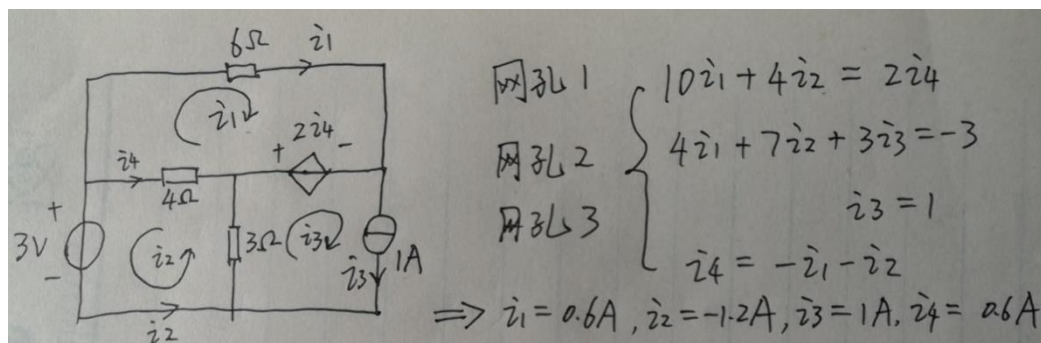 6Ω
i1
i1
i4
2i4
+ -
4Ω
+
3V
-
i2
3Ω
i3
i3
1A
i2
网孔1
10i1 + 4i2 = 2i4
网孔2
4i1 + 7i2 + 3i3 = -3
网孔3
i3 = 1
i4 = -i1 - i2
⇒ i1 = 0.6A, i2 = -1.2A, i3 = 1A, i4 = 0.6A